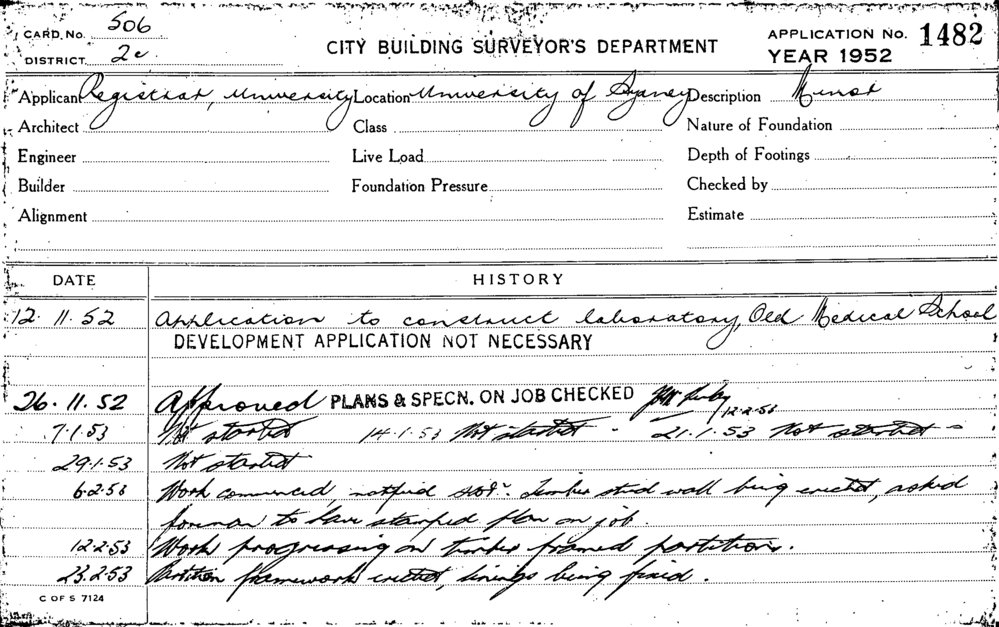 CARD No. 506
DISTRICT 2c
CITY BUILDING SURVEYOR'S DEPARTMENT
APPLICATION No. 1482
YEAR 1952
Applicant Registrar, University Location University of Sydney Description Minor
Architect Class Nature of Foundation
Engineer Live Load Depth of Footings
Builder Foundation Pressure Checked by
Alignment Estimate
DATE HISTORY
12.11.52 Application to construct laboratory, Old Medical School
DEVELOPMENT APPLICATION NOT NECESSARY
26.11.52 Approved PLANS & SPECN. ON JOB CHECKED 12.2.53
7.1.53 Not started 14.1.53 Not started - 21.1.53 Not started -
29.1.53 Not started
6.2.53 Work commenced, Timber stud wall being erected, asked
foreman to have stamped plan on job.
12.2.53 Work progressing on timber framed partitions.
23.2.53 Partition framework erected, linings being fixed.
C OF S 7124